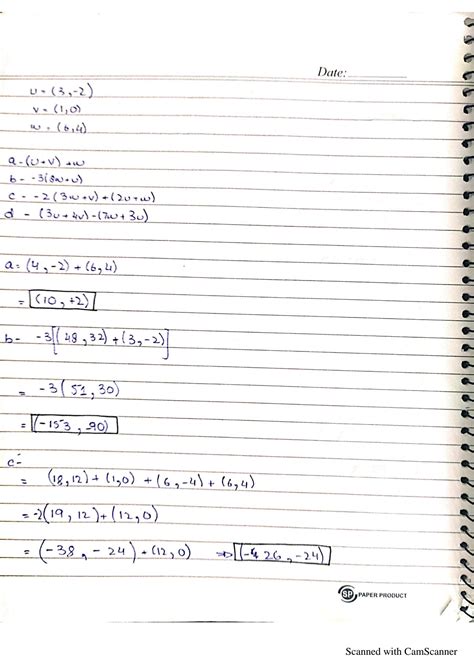 Date:
u = (3,-2)
v = (1,0)
w = (6,4)
a - (u+v) + w
b - -3(8w+u)
c - -2(3w+v)+(2u+w)
d - (3u+4v)-(7w+3u)
a = (4,-2) + (6,4)
= (10,+2)
b - -3[(48,32)+(3,-2)]
= -3(51,30)
= (-153, 90)
c -
= (18,12)+(1,0) + (6,-4)+(6,4)
= -2(19,12)+(12,0)
= (-38,-24)+(12,0) ⇒ (-26,-24)
SP PAPER PRODUCT
Scanned with CamScanner